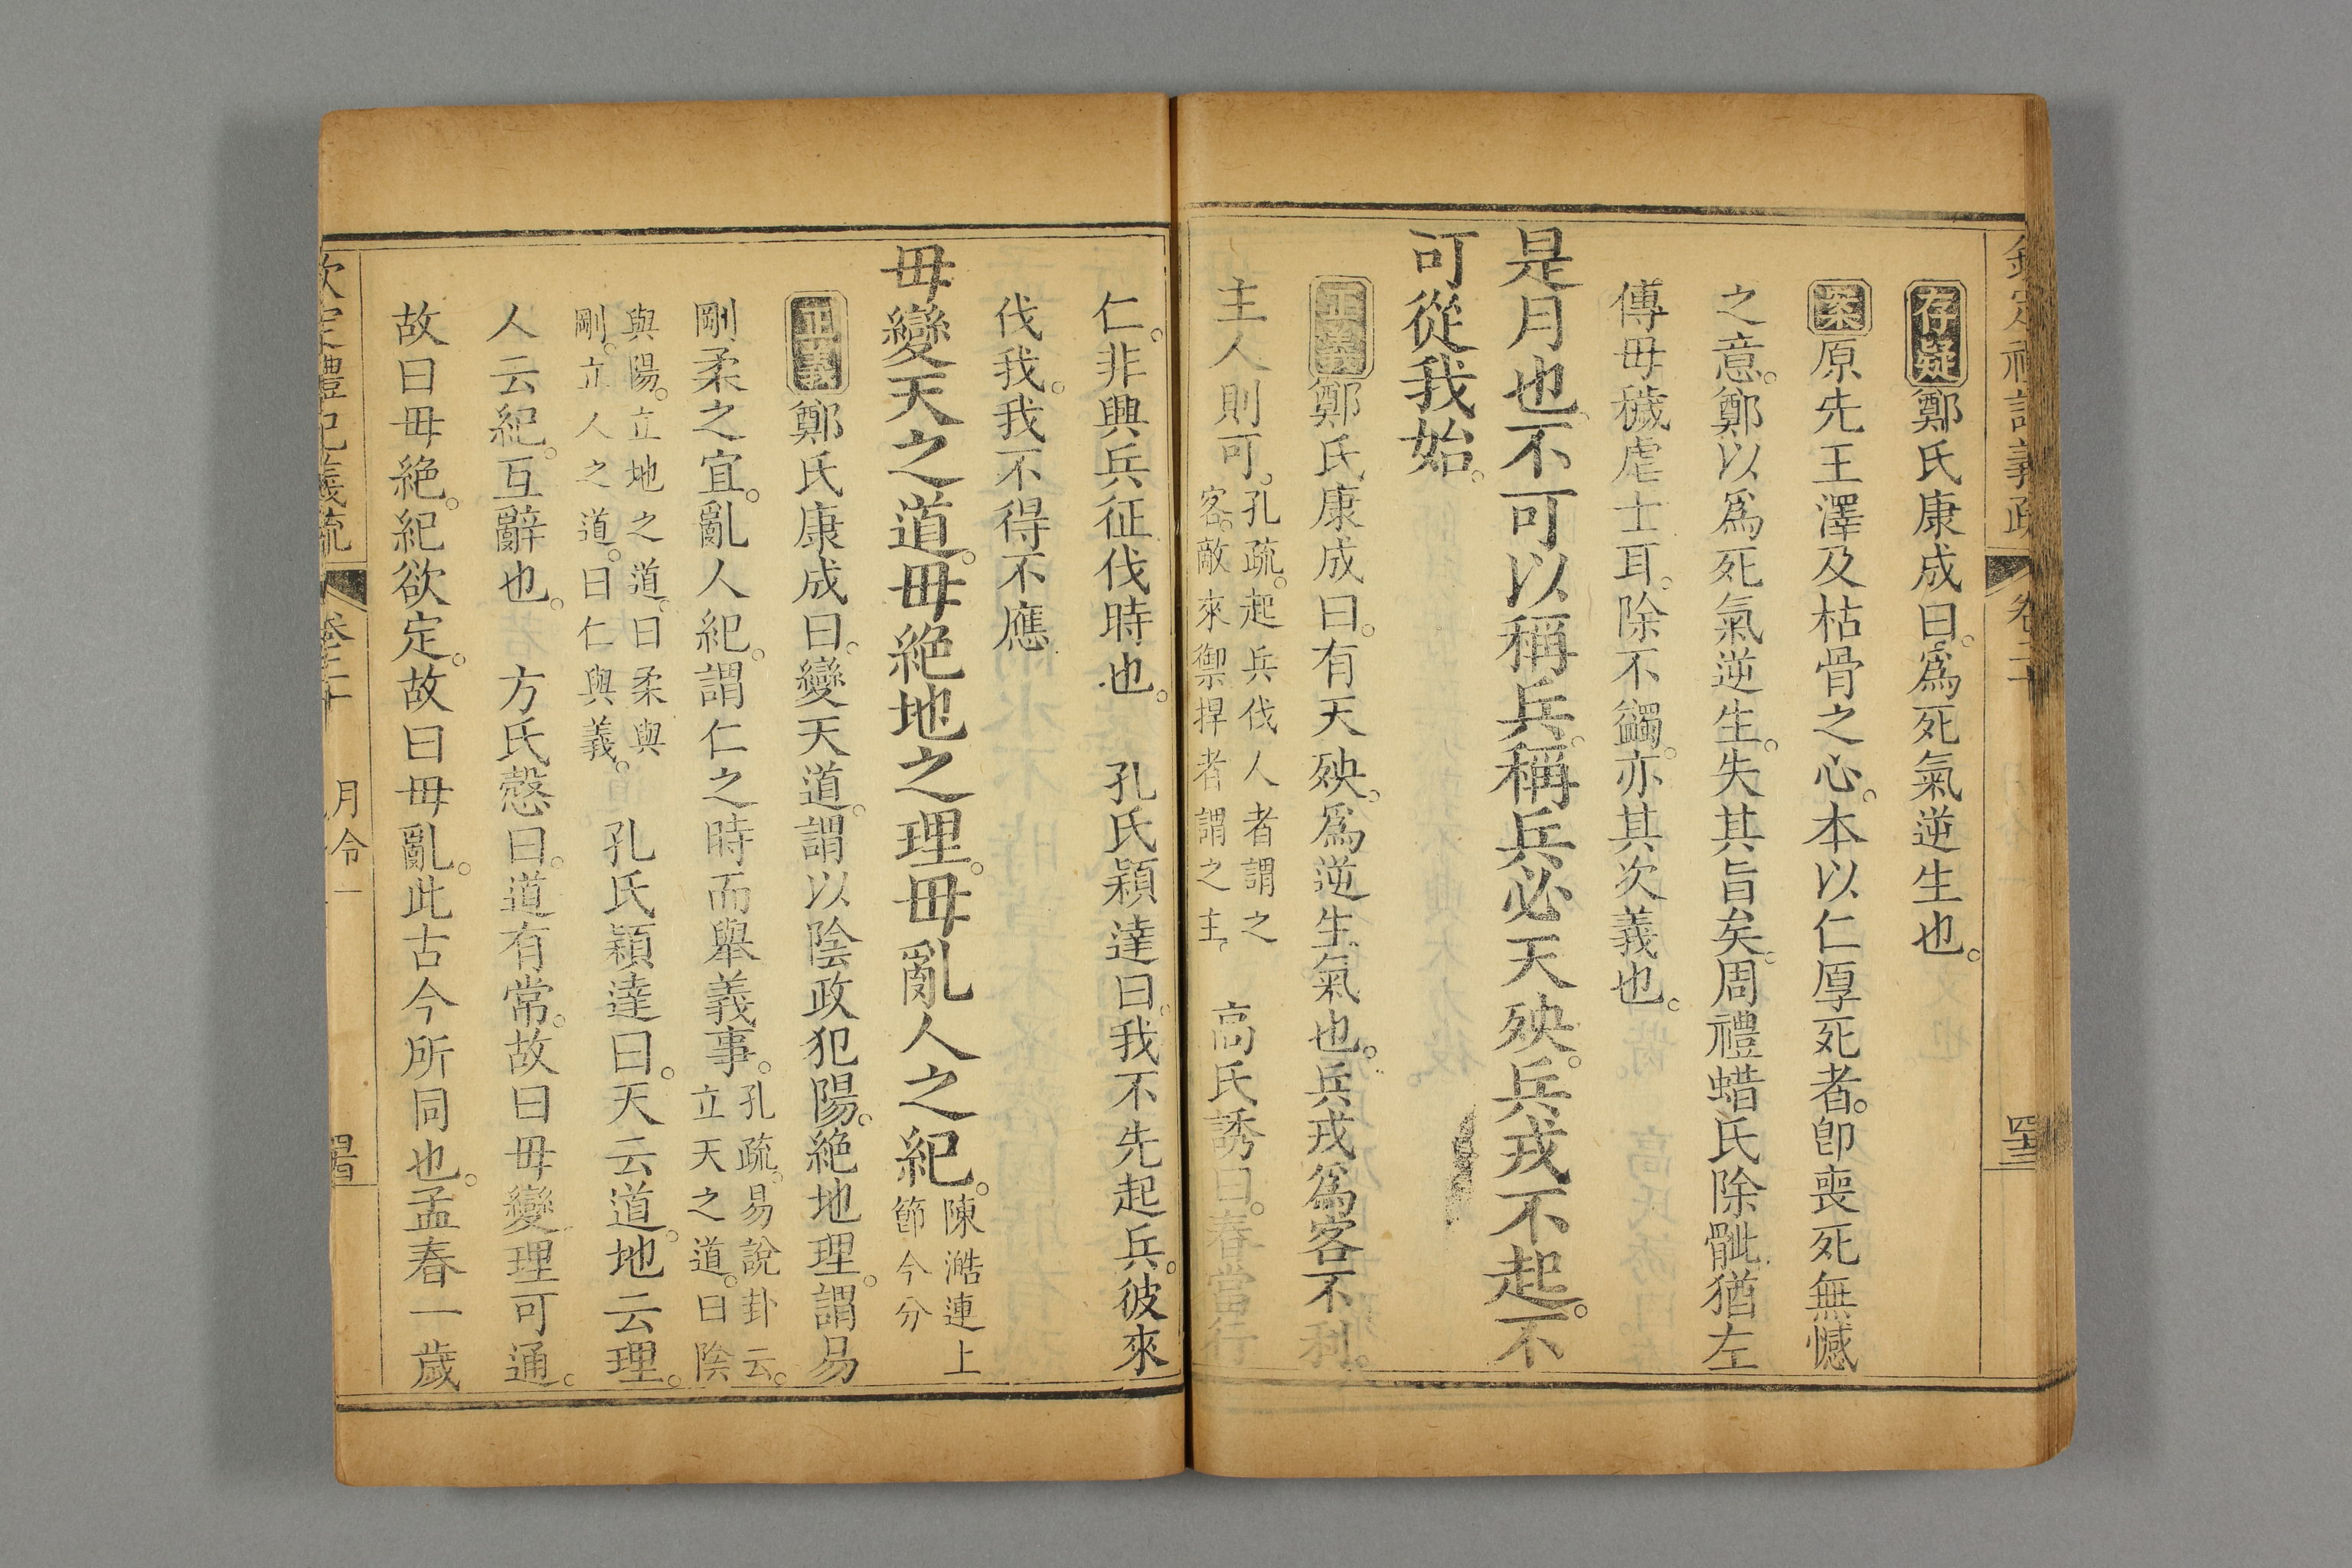 欽定禮記義疏 卷二十 四三
存疑鄭氏康成曰。爲死氣逆生也。
案原先王澤及枯骨之心。本以仁厚死者。卽喪死無憾
之意。鄭以爲死氣逆生。失其旨矣。周禮蜡氏除骴猶左
傳毋穢虐士耳。除不蠲。亦其次義也。
是月也。不可以稱兵。稱兵必天殃。兵戎不起。不
可從我始。
正義鄭氏康成曰。有天殃。爲逆生氣也。兵戎爲客不利。
主人則可。孔疏。起兵伐人者謂之客。敵來禦捍者謂之主。 高氏誘曰。春當行
仁。非興兵征伐時也。 孔氏穎達曰。我不先起兵。彼來
伐我。我不得不應。
毋變天之道。毋絶地之理。毋亂人之紀。陳澔連上節今分
正義鄭氏康成曰。變天道。謂以陰政犯陽。絶地理。謂易
剛柔之宜。亂人紀。謂仁之時而舉義事。孔疏。易說卦云。立天之道。曰陰
與陽。立地之道。曰柔與剛。立人之道。曰仁與義。 孔氏穎達曰。天云道。地云理。
人云紀。互辭也。 方氏慤曰。道有常。故曰毋變。理可通。
故曰毋絶。紀欲定。故曰毋亂。此古今所同也。孟春一歲
欽定禮記義疏 卷二十 月令一